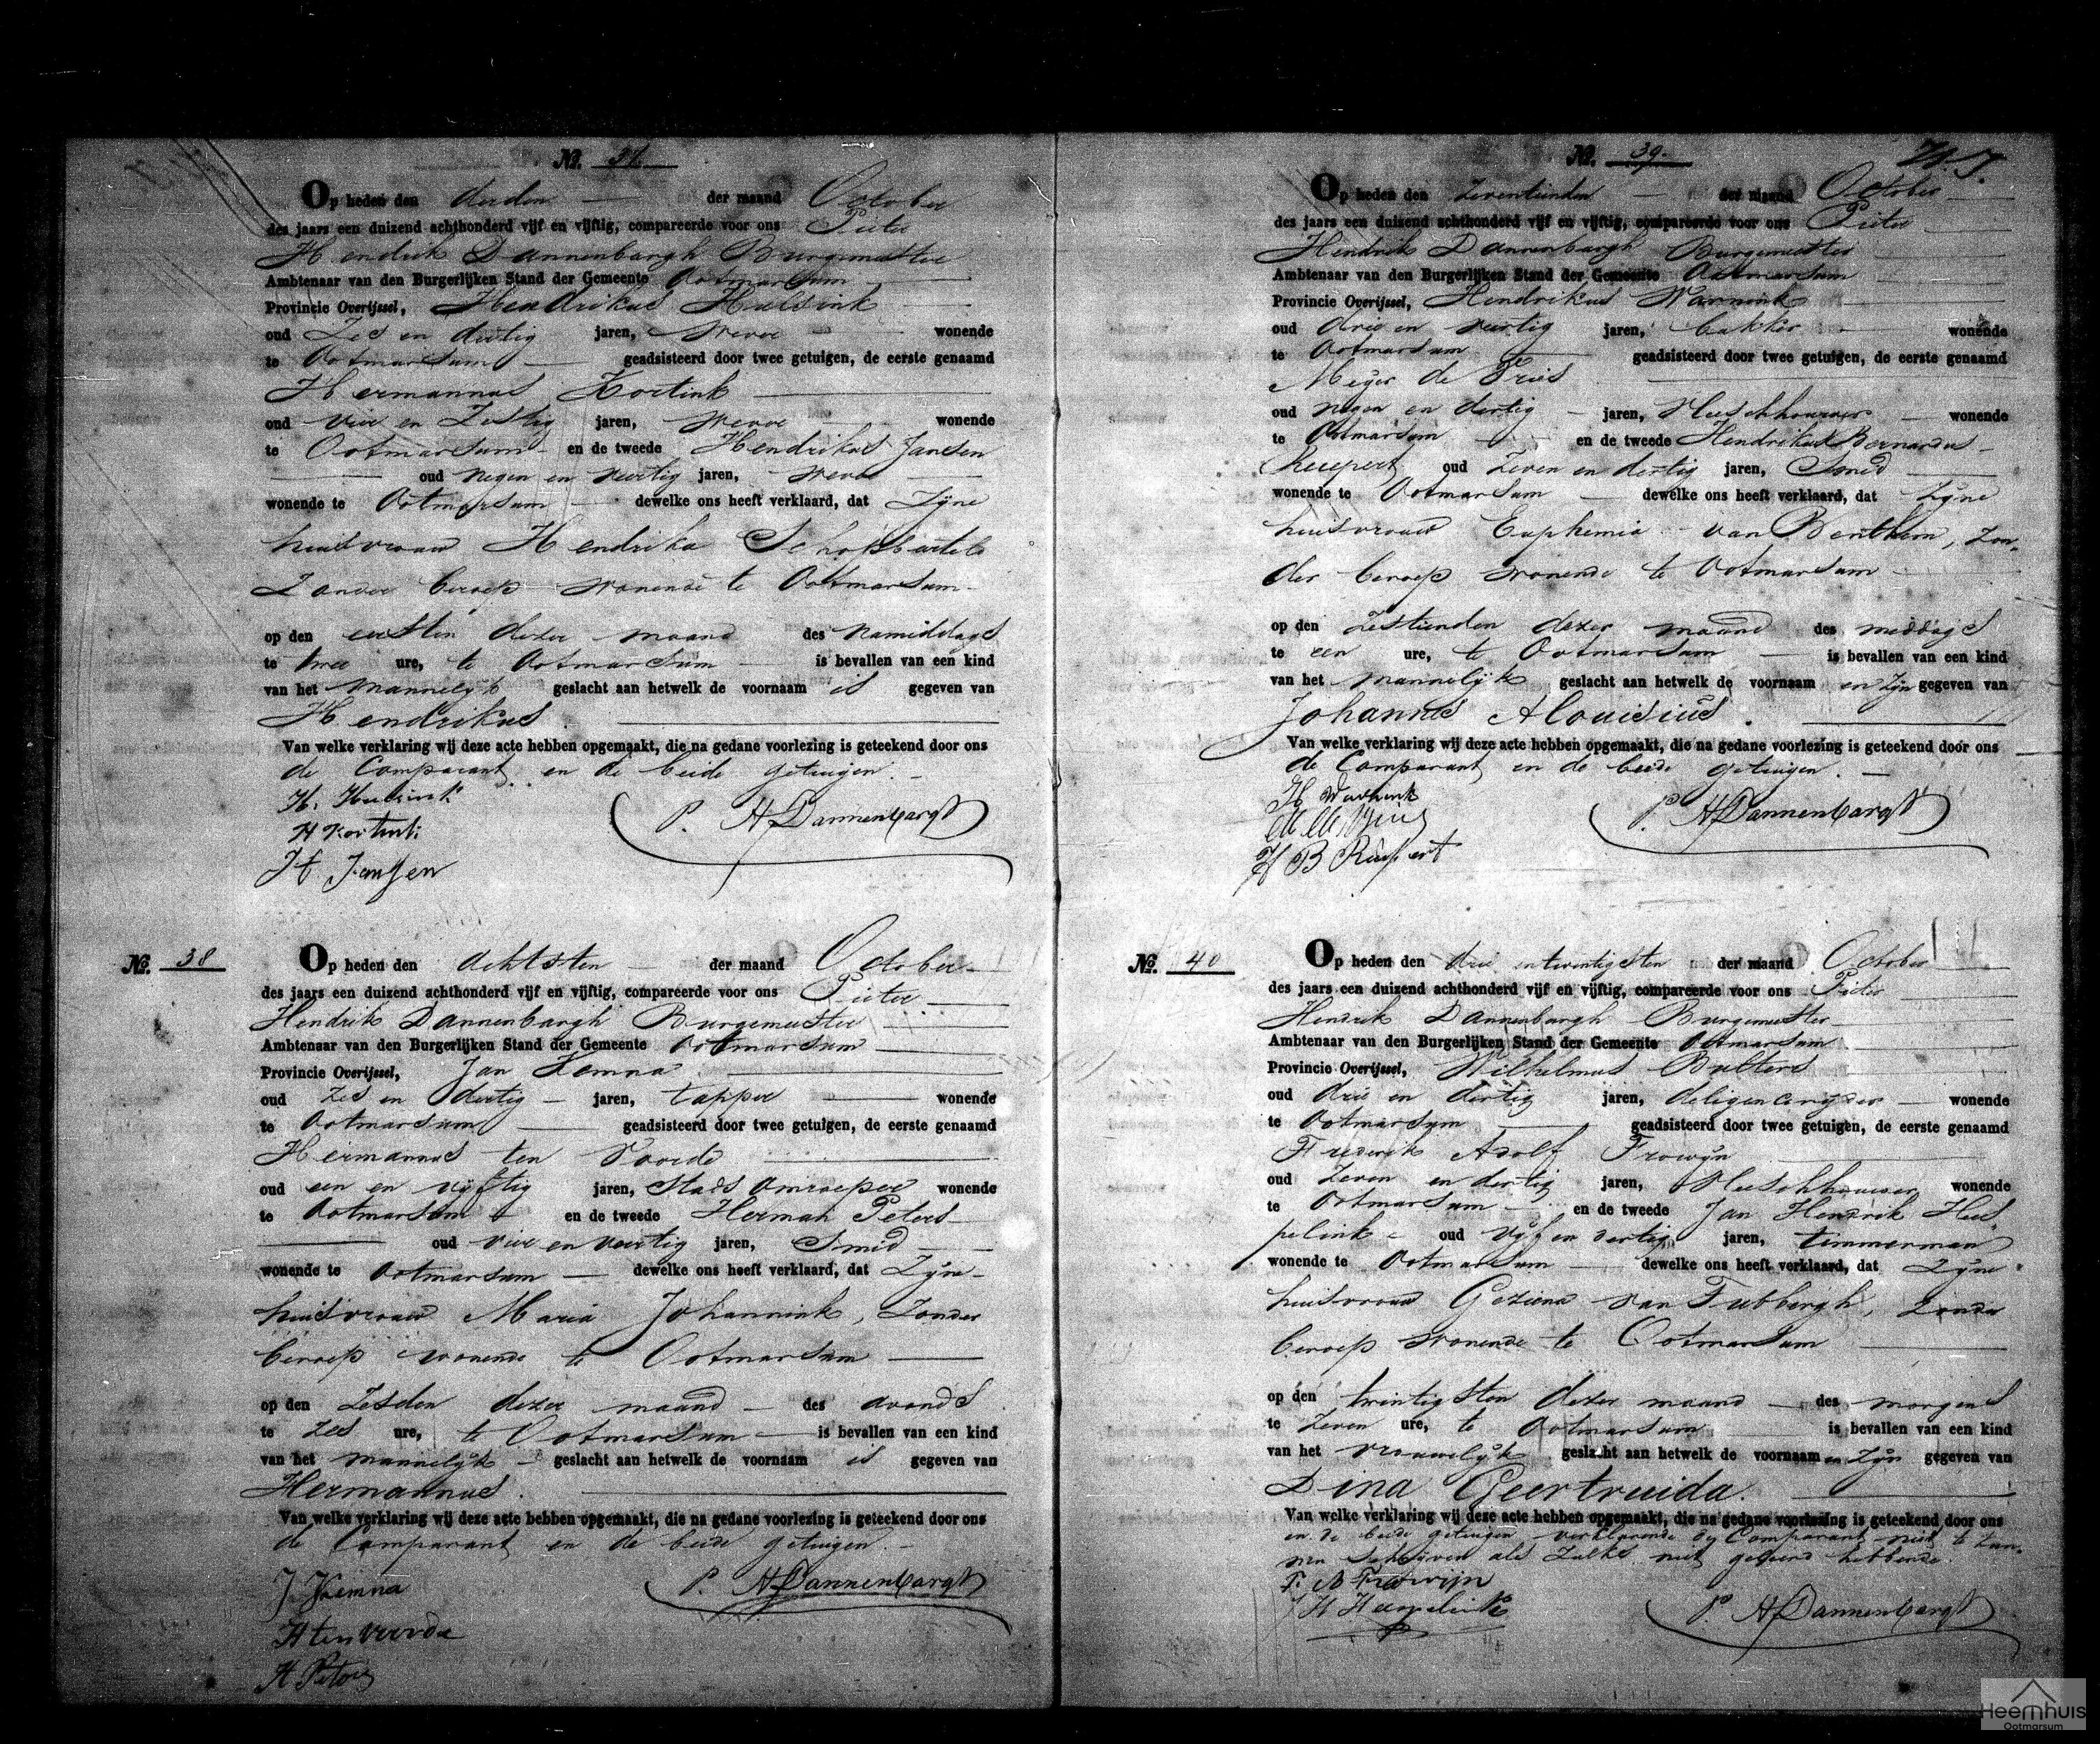 No. 37.
Op heden den derden der maand October
des jaars een duizend achthonderd vijf en vijftig, compareerde voor ons Pieter
Hendrik Dannenbargh Burgemeester
Ambtenaar van den Burgerlijken Stand der Gemeente Ootmarsum
Provincie Overijssel, Hendrikus Hulsink
oud Zes en dertig jaren, wever wonende
te Ootmarsum geadsisteerd door twee getuigen, de eerste genaamd
Hermannus Kortink
oud vier en Zestig jaren, wever wonende
te Ootmarsum en de tweede Hendrikus Jansen
oud negen en veertig jaren, wever
wonende te Ootmarsum dewelke ons heeft verklaard, dat Zijne
huisvrouw Hendrika
Zonder beroep wonende te Ootmarsum
op den eersten dezer maand des namiddags
te twee ure, te Ootmarsum is bevallen van een kind
van het mannelijk geslacht aan hetwelk de voornaam is gegeven van
Hendrikus.
Van welke verklaring wij deze acte hebben opgemaakt, die na gedane voorlezing is geteekend door ons
de Comparant en de beide getuigen.
H. Hulsink
H Kortink
H. Janssen
P. H Dannenbargh
No. 38
Op heden den achtsten der maand October
des jaars een duizend achthonderd vijf en vijftig, compareerde voor ons Pieter
Hendrik Dannenbargh Burgemeester
Ambtenaar van den Burgerlijken Stand der Gemeente Ootmarsum
Provincie Overijssel, Jan Kemna
oud Zes en dertig jaren, tapper wonende
te Ootmarsum geadsisteerd door twee getuigen, de eerste genaamd
Hermannus ten Voorde
oud een en vijftig jaren, Stads omroeper wonende
te Ootmarsum en de tweede Herman Peters
oud vier en veertig jaren, Smid
wonende te Ootmarsum dewelke ons heeft verklaard, dat Zijne
huisvrouw Maria Johannink, Zonder
beroep wonende te Ootmarsum
op den Zesden dezer maand des avonds
te Zes ure, te Ootmarsum is bevallen van een kind
van het mannelijk geslacht aan hetwelk de voornaam is gegeven van
Hermannus.
Van welke verklaring wij deze acte hebben opgemaakt, die na gedane voorlezing is geteekend door ons
de Comparant en de beide getuigen.
J Kemna
H ten Voorde
H Peters
P. H Dannenbargh
No. 39.
Op heden den Zeventienden der maand October
des jaars een duizend achthonderd vijf en vijftig, compareerde voor ons Pieter
Hendrik Dannenbargh Burgemeester
Ambtenaar van den Burgerlijken Stand der Gemeente Ootmarsum
Provincie Overijssel, Hendrikus Warmink
oud drie en veertig jaren, bakker wonende
te Ootmarsum geadsisteerd door twee getuigen, de eerste genaamd
Meijer de Vries
oud negen en dertig jaren, Vleeschhouwer wonende
te Ootmarsum en de tweede Hendrikus Bernardus
Ruepert oud Zeven en dertig jaren, Smid
wonende te Ootmarsum dewelke ons heeft verklaard, dat Zijne
huisvrouw Euphemia van Benthem, Zon-
der beroep wonende te Ootmarsum
op den Zestienden dezer maand des middags
te een ure, te Ootmarsum is bevallen van een kind
van het mannelijk geslacht aan hetwelk de voornaam en Zijn gegeven van
Johannes Alouisius.
Van welke verklaring wij deze acte hebben opgemaakt, die na gedane voorlezing is geteekend door ons
de Comparant en de beide getuigen.
H Warmink
H B Ruepert
P. H Dannenbargh
No. 40
Op heden den drie en twentigsten der maand October
des jaars een duizend achthonderd vijf en vijftig, compareerde voor ons Pieter
Hendrik Dannenbargh Burgemeester
Ambtenaar van den Burgerlijken Stand der Gemeente Ootmarsum
Provincie Overijssel, Wilhelmus Bulters
oud drie en dertig jaren, deligencerijder wonende
te Ootmarsum geadsisteerd door twee getuigen, de eerste genaamd
Frederik Adolf Frowijn
oud Zeven en dertig jaren, Vleeschhouwer wonende
te Ootmarsum en de tweede Jan Hendrik Hees-
pelink oud vijf en dertig jaren, timmerman
wonende te Ootmarsum dewelke ons heeft verklaard, dat Zijne
huisvrouw Geziena van Tubbergh, Zonder
beroep wonende te Ootmarsum
op den twintigsten dezer maand des morgens
te Zeven ure, te Ootmarsum is bevallen van een kind
van het vrouwelijk geslacht aan hetwelk de voornaam en Zijn gegeven van
Dina Geertruida.
Van welke verklaring wij deze acte hebben opgemaakt, die na gedane voorlezing is geteekend door ons
en de beide getuigen verklarende de Comparant niet te kun-
nen schrijven als Zulks niet geleerd hebbende.
F. A Frowijn
J H Heespelink
P. H Dannenbargh
Heemhuis
Ootmarsum